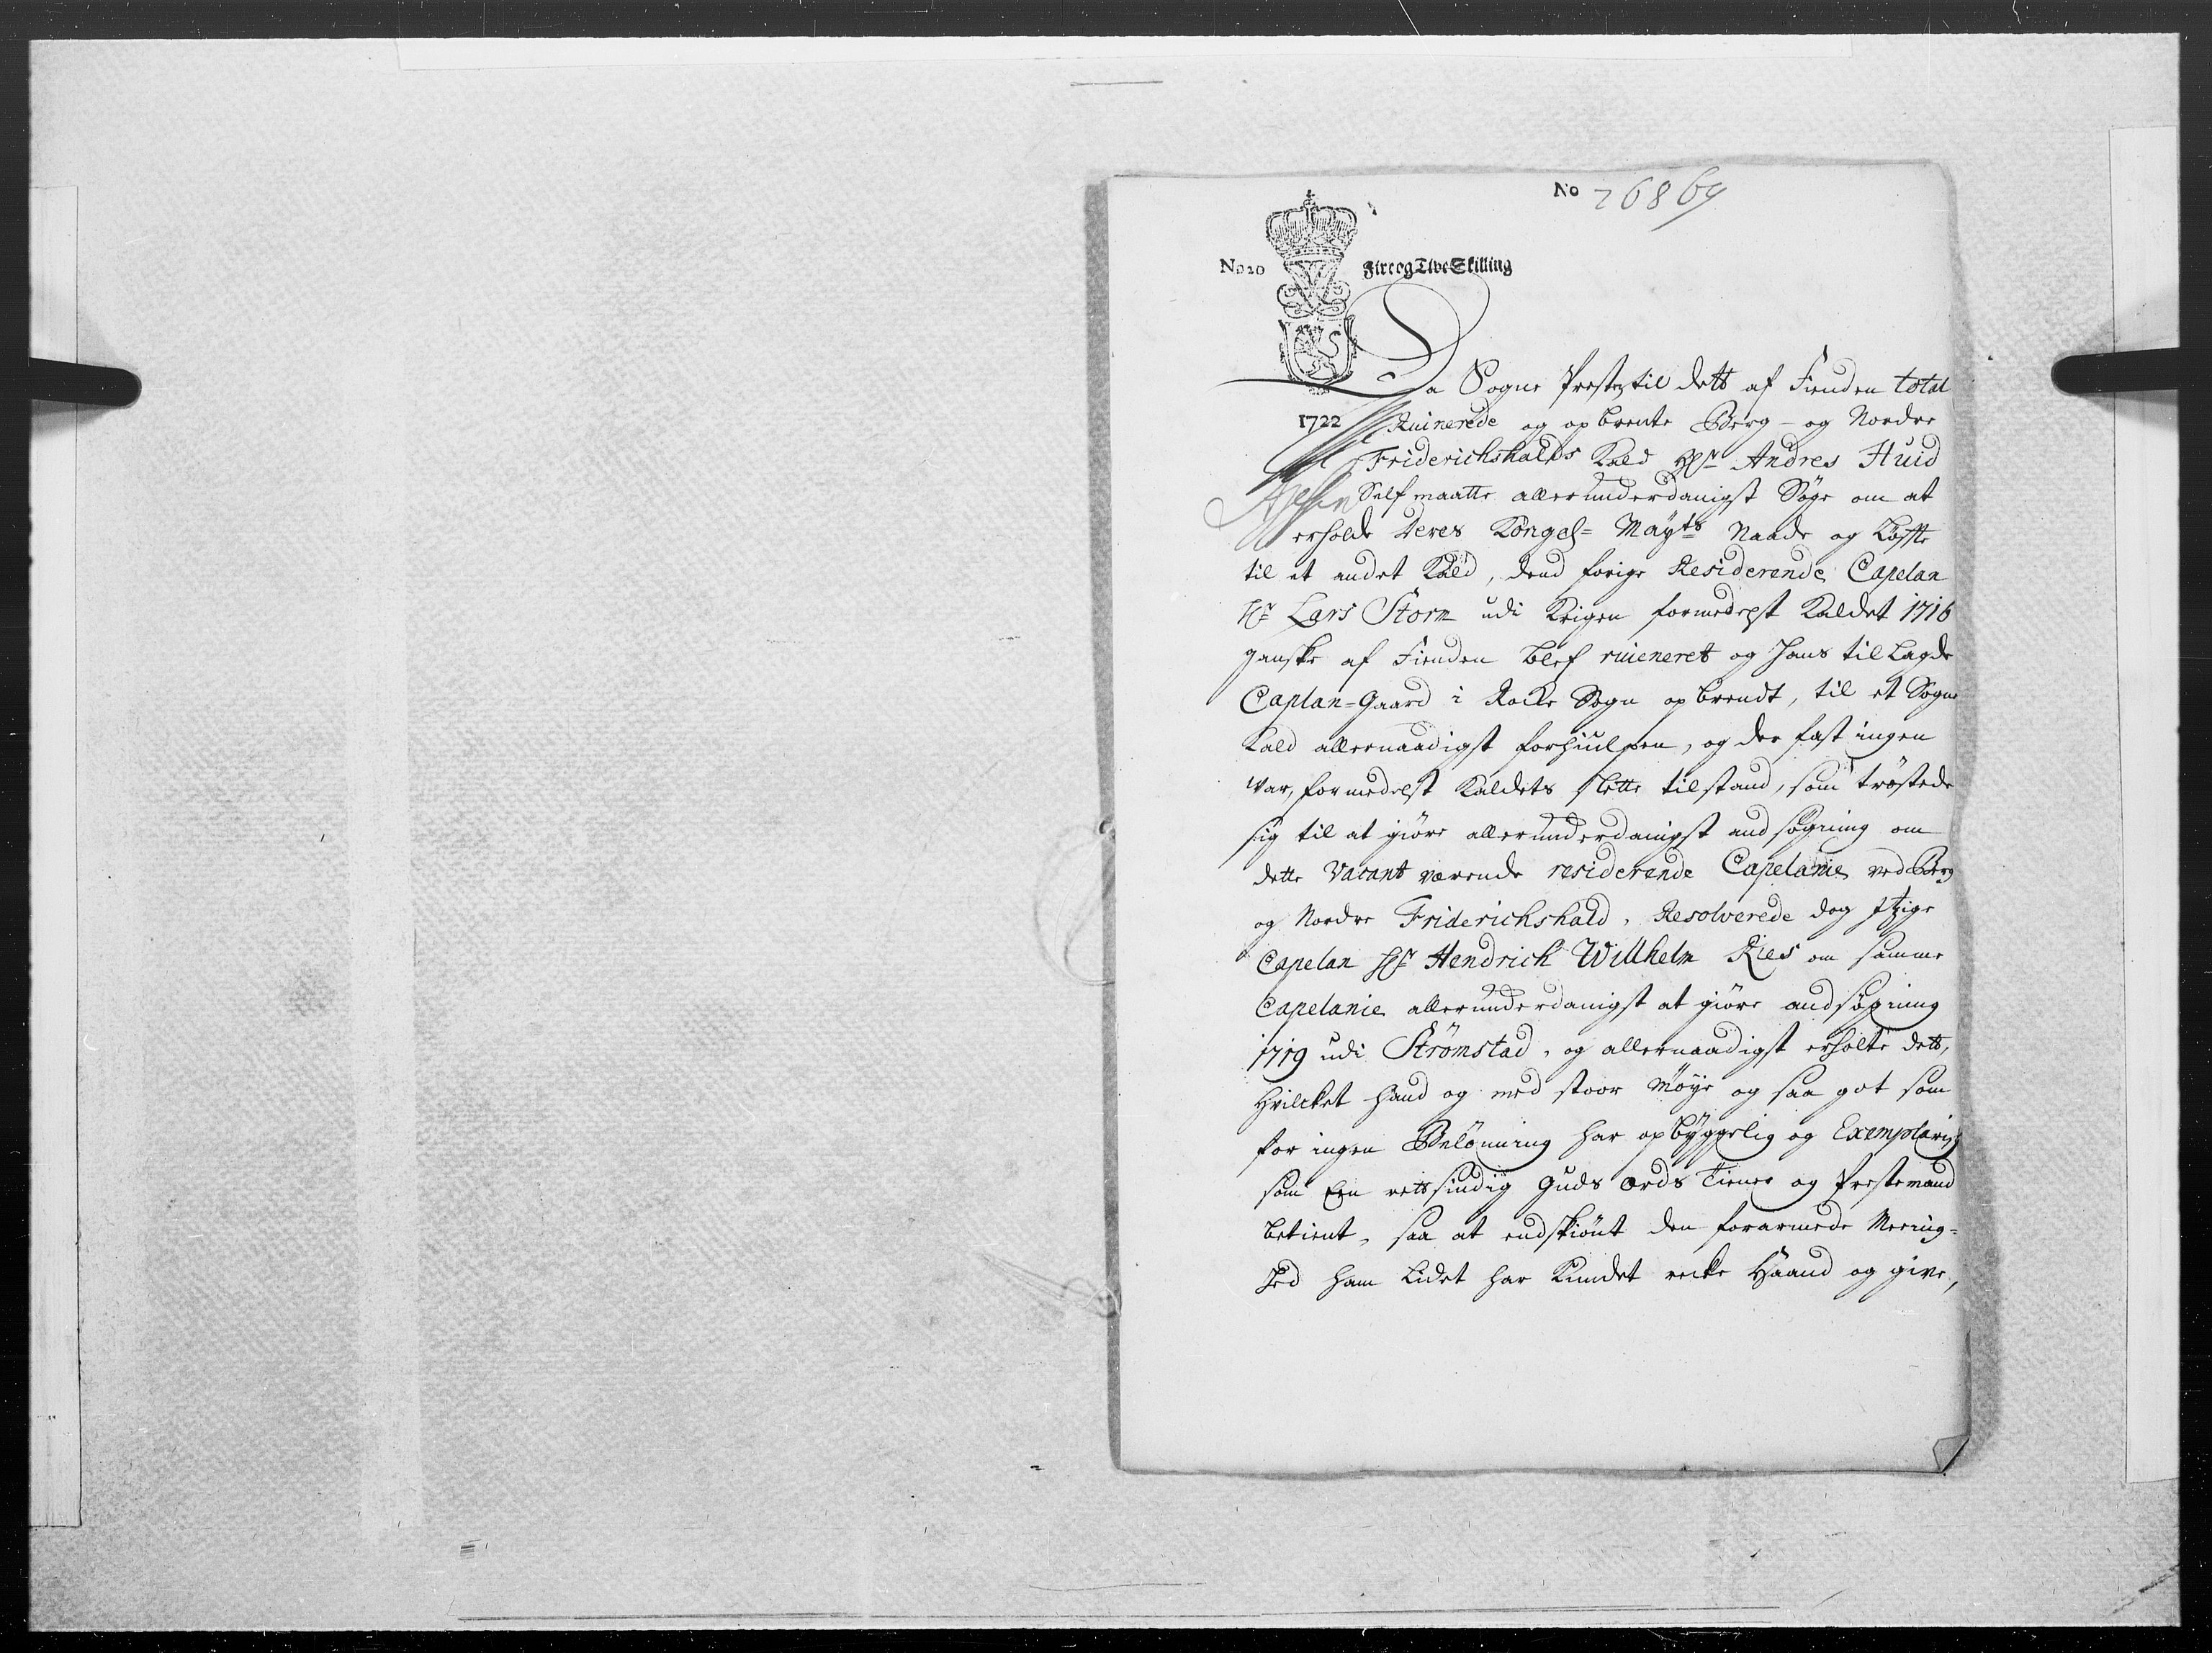 No 26869
No 20 Fire og Tive Skilling
Da Sogne Presten til dett af Fienden total
1722 Ruinerede og opbrente Berg- og Nordre
Friderichshalds Kald Hr Andres Huid
Self maatte allerunderdanigst Søge om at
erholde Deres Kongel= Mayts Naade og Løffte
til et andet Kald, dend forige Residerende Capelan
Hr Lars Storm udi Krigen formedelst Kaldet 1716
ganske af Fienden blef ruineret og hans tillagde
Caplan-Gaard i Rocke Sogn opbrendt, til et Sogne
Kald allernaadigst forhiulpen, og der fast ingen
var, formedelst Kaldets slette tilstand, som trøstede
sig til at giøre allerunderdanigst andsøgning om
dette Vacant værende residerende Capelanie ved Berg
og Nordre Friderichshald, Resolverede dog Itzige
Capelan Hr Hendrich Willhelm Ries om samme
Capelanie allerunderdanigst at giøre andsøgning
1719 udi Strømstad, og allernaadigst erholte dett,
hvilcket hand og med stoor Møye og saa got som
for ingen Belønning har opbyggelig og Exemplarisk
som Een rettsindig Guds Ords Tiener og Prestemand
betient, saa at endskiønt den forarmede Meenig-
hed ham lidet har kundet recke Haand og give,